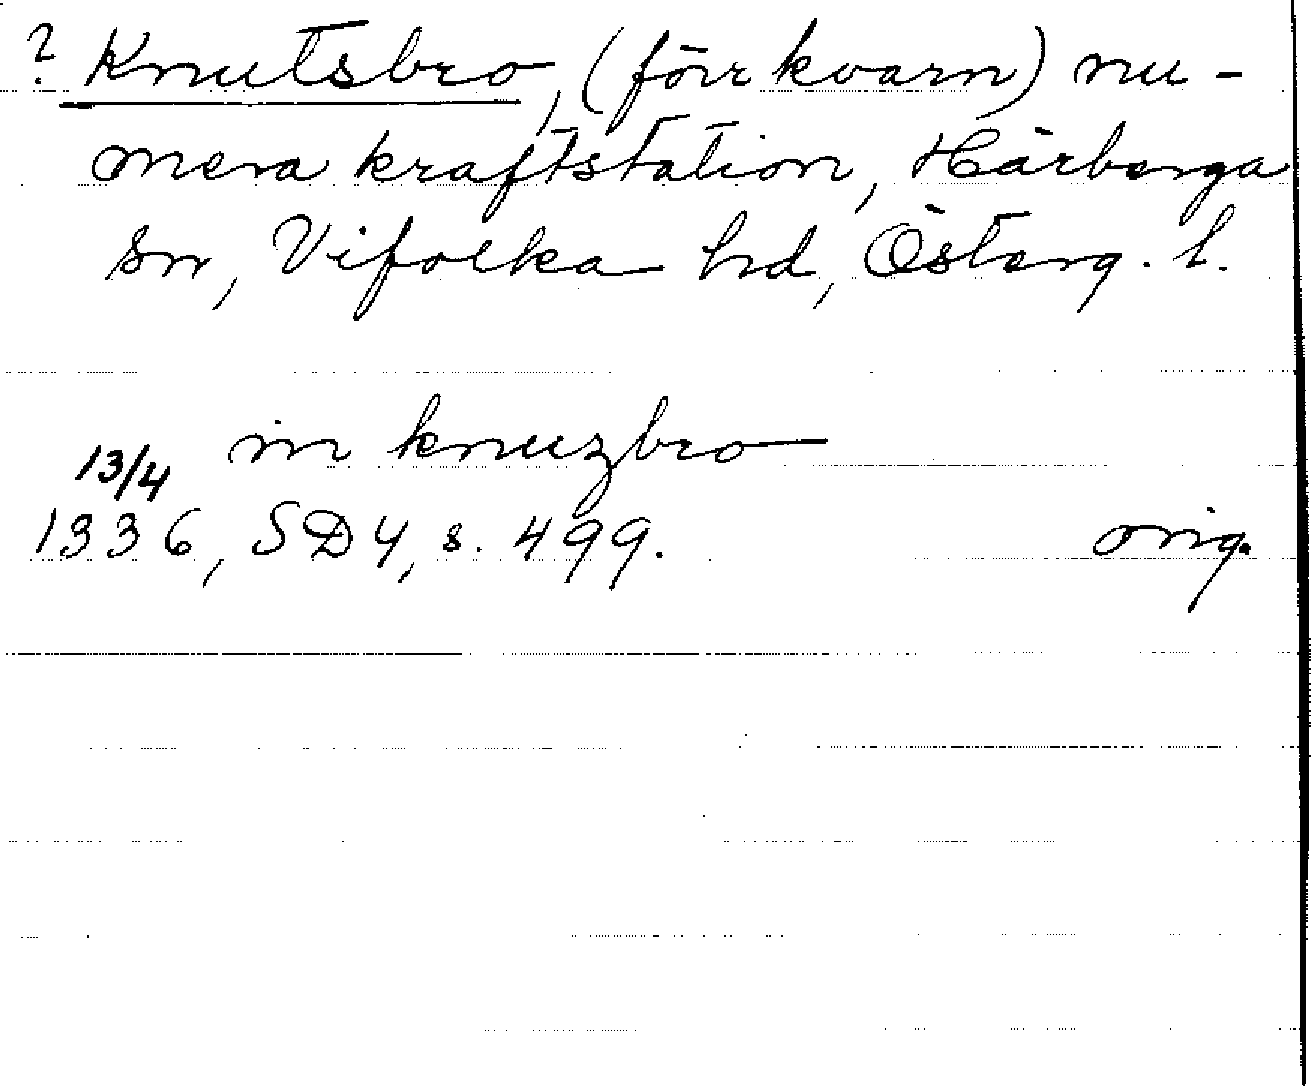 ? Knutsbro, (förr kvarn) nu-
mera kraftstation, Härberga
sn, Vifolka hd, Österg. l.
in knuzbro
13/4
1336, SD 4, s. 499. orig.